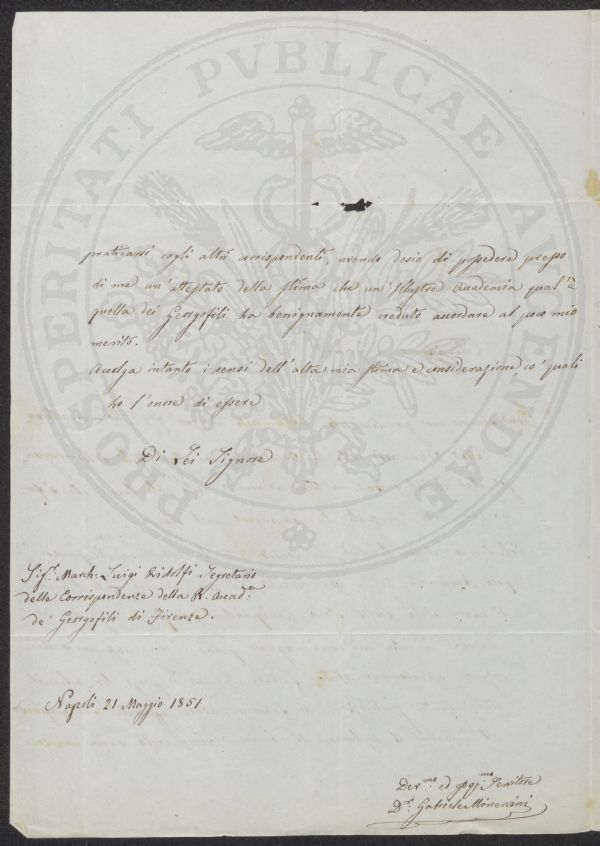 PROSPERITATI PVBLICAE AVGENDAE
praticarsi cogli altri corrispondenti, avendo desio di possedere presso
di me un'attestato della stima che un'Illustre Accademia qual'è
quella dei Georgofili ha benignamente creduto accordare al poco mio
merito.
Accolga intanto i sensi dell'alta mia stima e considerazione co' quali
ho l'onore di essere
Di Lei Signore
Sigr. March: Luigi Ridolfi Segretario
delle Corrispondenze della R. Accad:a
de' Georgofili di Firenze.
Napoli 21 Maggio 1851
Dev.mo ed obg.mo Servitore
Dr. Gabriele Minervini